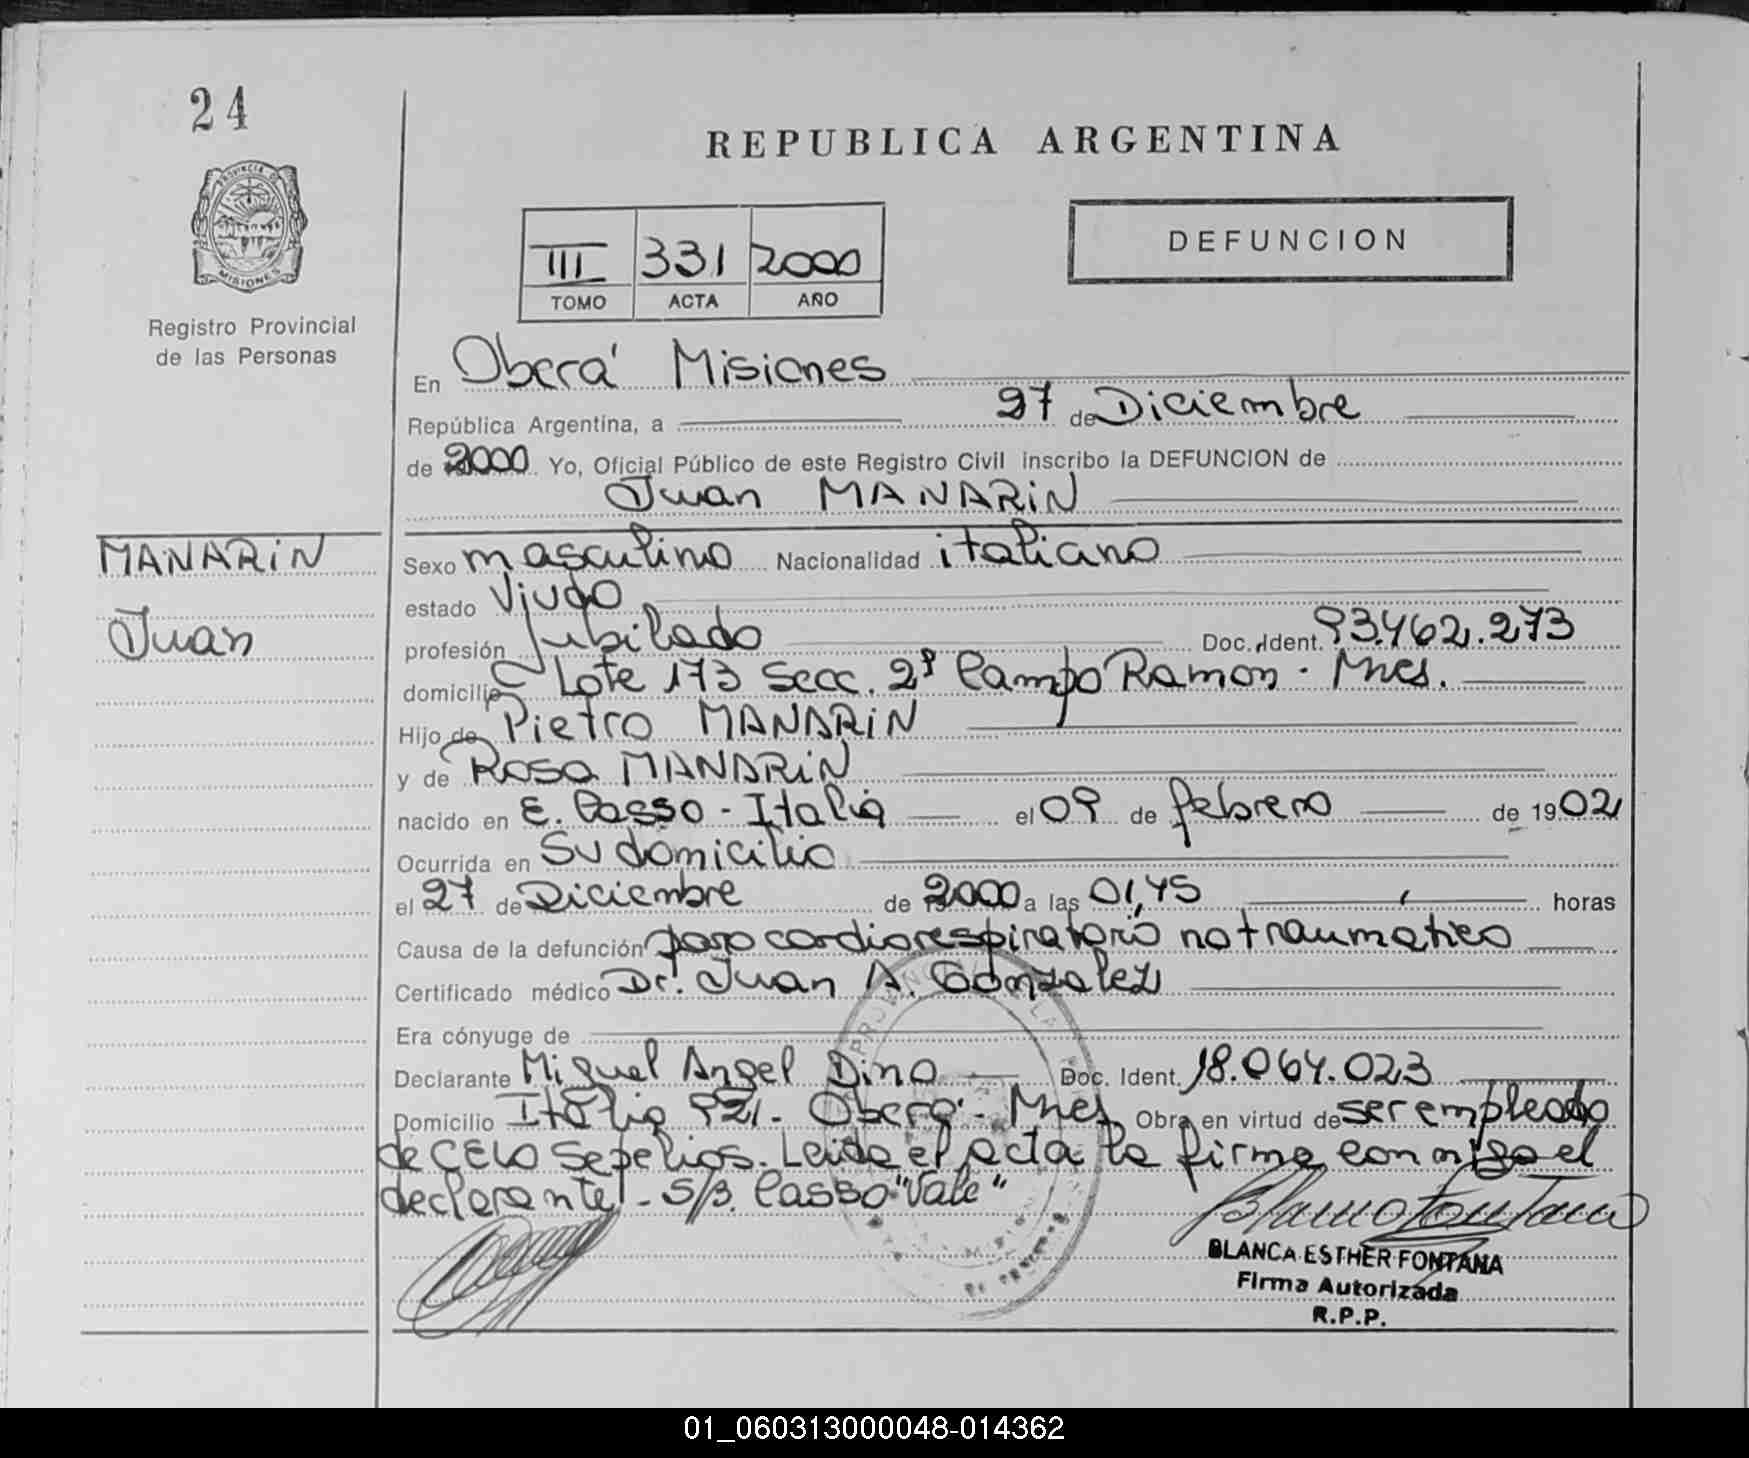 24
REPUBLICA ARGENTINA
PROVINCIA DE
MISIONES
III 331 2000
TOMO ACTA AÑO
DEFUNCION
Registro Provincial
de las Personas
En Oberá Misiones
República Argentina, a 27 de Diciembre
de 2000 Yo, Oficial Público de este Registro Civil inscribo la DEFUNCION de
Juan MANARiN
MANARiN
Juan
Sexo masculino Nacionalidad italiano
estado Viudo
profesión Jubilado Doc. Ident. 93.462.273
domicilio Lote 173 Secc. 2ª Campo Ramon - Mnes.
Hijo de Pietro MANARiN
y de Rosa MANARiN
nacido en E. Casso - Italia el 09 de febrero de 1902
Ocurrida en Su domicilio
el 27 de Diciembre de 2000 a las 01,45 horas
Causa de la defunción paro cardiorespiratorio no traumatico
Certificado médico Dr. Juan A. Gonzalez
Era cónyuge de
Declarante Miguel Angel Dino Doc. Ident. 18.064.023
Domicilio Italia 921 - Oberá - Mnes Obra en virtud de ser empleado
de CELO Sepelios. Leida el acta la firma conmigo el
declarante - S/B. Casso "Vale"
BLANCA ESTHER FONTANA
Firma Autorizada
R.P.P.
01_060313000048-014362